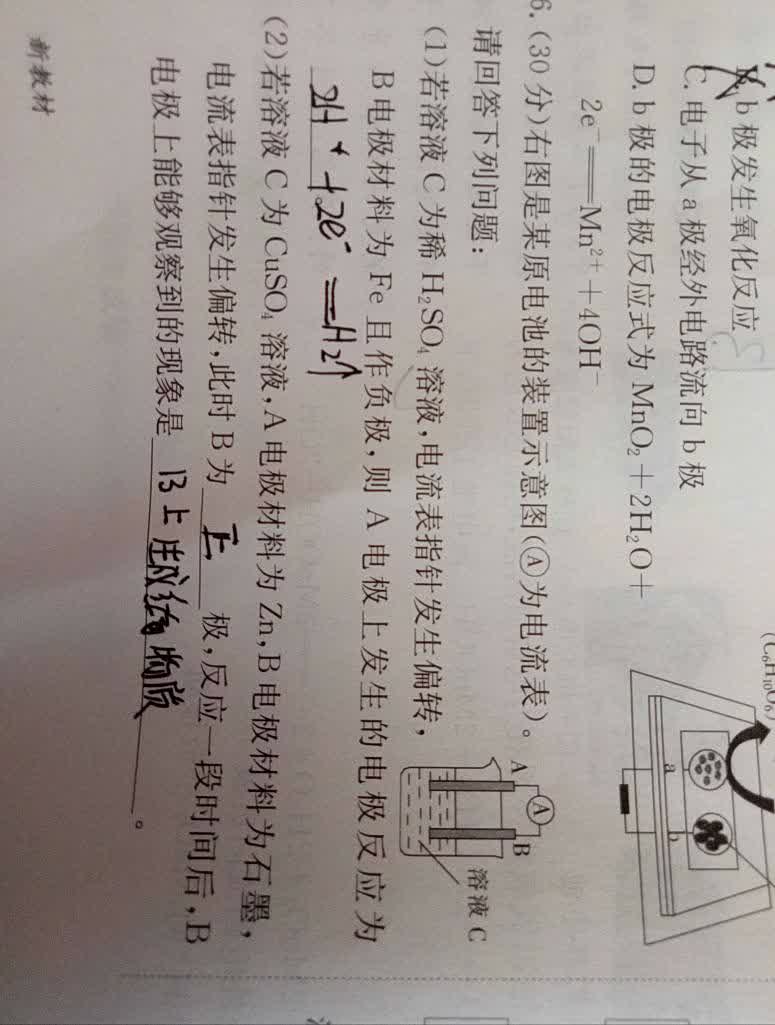 B. b极发生氧化反应
C. 电子从a极经外电路流向b极
D. b极的电极反应式为 MnO₂+2H₂O+
2e⁻══Mn²⁺+4OH⁻
(C₆H₁₀O₆)
a
b
6. (30分)右图是某原电池的装置示意图(Ⓐ为电流表)。
请回答下列问题:
(1)若溶液C为稀H₂SO₄溶液,电流表指针发生偏转,
B电极材料为Fe且作负极,则A电极上发生的电极反应为
2H⁺+2e⁻=H₂↑
A
A
B
溶液C
(2)若溶液C为CuSO₄溶液,A电极材料为Zn,B电极材料为石墨,
电流表指针发生偏转,此时B为 正 极,反应一段时间后,B
电极上能够观察到的现象是 B上 物质 。
新教材